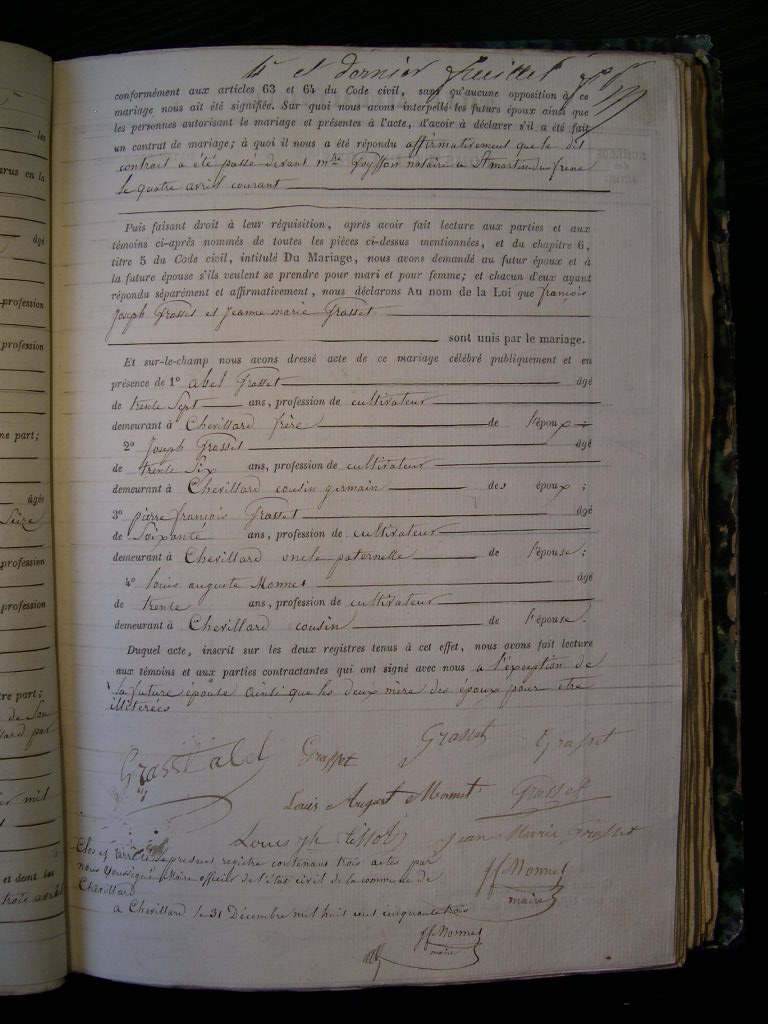 4e et dernier feuillet
conformément aux articles 63 et 64 du Code civil, sans qu'aucune opposition à ce
mariage nous ait été signifiée. Sur quoi nous avons interpellé les futurs époux ainsi que
les personnes autorisant le mariage et présentes à l'acte, d'avoir à déclarer s'il a été fait
un contrat de mariage; à quoi il nous a été répondu affirmativement que le dit
contrat a été passé devant mtre Guyffon notaire a St martin du frene
le quatre avril courant
Puis faisant droit à leur réquisition, après avoir fait lecture aux parties et aux
témoins ci-après nommés de toutes les pièces ci-dessus mentionnées, et du chapitre 6,
titre 5 du Code civil, intitulé Du Mariage, nous avons demandé au futur époux et à
la future épouse s'ils veulent se prendre pour mari et pour femme; et chacun d'eux ayant
répondu séparément et affirmativement, nous déclarons Au nom de la Loi que françois
Joseph Grasset et Jeanne marie Grasset
sont unis par le mariage.
Et sur-le-champ nous avons dressé acte de ce mariage célébré publiquement et en
présence de 1º abel Grasset âgé
de trente Sept ans, profession de cultivateur
demeurant à Chevillard frère de l'époux
2º Joseph Grasset âgé
de trente Six ans, profession de cultivateur
demeurant à Chevillard cousin germain des époux;
3º pierre françois Grasset âgé
de Soixante ans, profession de cultivateur
demeurant à Chevillard oncle paternelle de l'épouse;
4º louis auguste Monnet âgé
de trente ans, profession de cultivateur
demeurant à Chevillard cousin de l'épouse.
Duquel acte, inscrit sur les deux registres tenus à cet effet, nous avons fait lecture
aux témoins et aux parties contractantes qui ont signé avec nous a l'éxception de
la future épouse ainsi que les deux mère des époux pour etre
illétérées
Grasset abel Grasset Grasset Grasset
Louis August Monnet Grasset
Louis Jh tissot Jean Marie Grasset
Clos et arrêté le present registre contenant trois actes par
nous Soussigné Maire officier de l'état civil de la commune de
Chevillard
jf Monnet
maire
a Chevillard le 31 Décembre mil huit cent cinquante trois
jf Monnet
maire